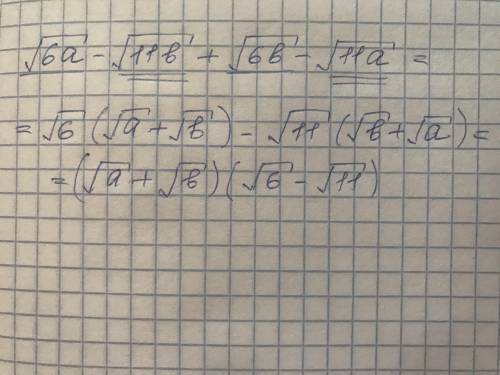 √6a - √11b + √6b - √11a =
= √6 (√a + √b) - √11 (√b + √a) =
= (√a + √b) (√6 - √11)